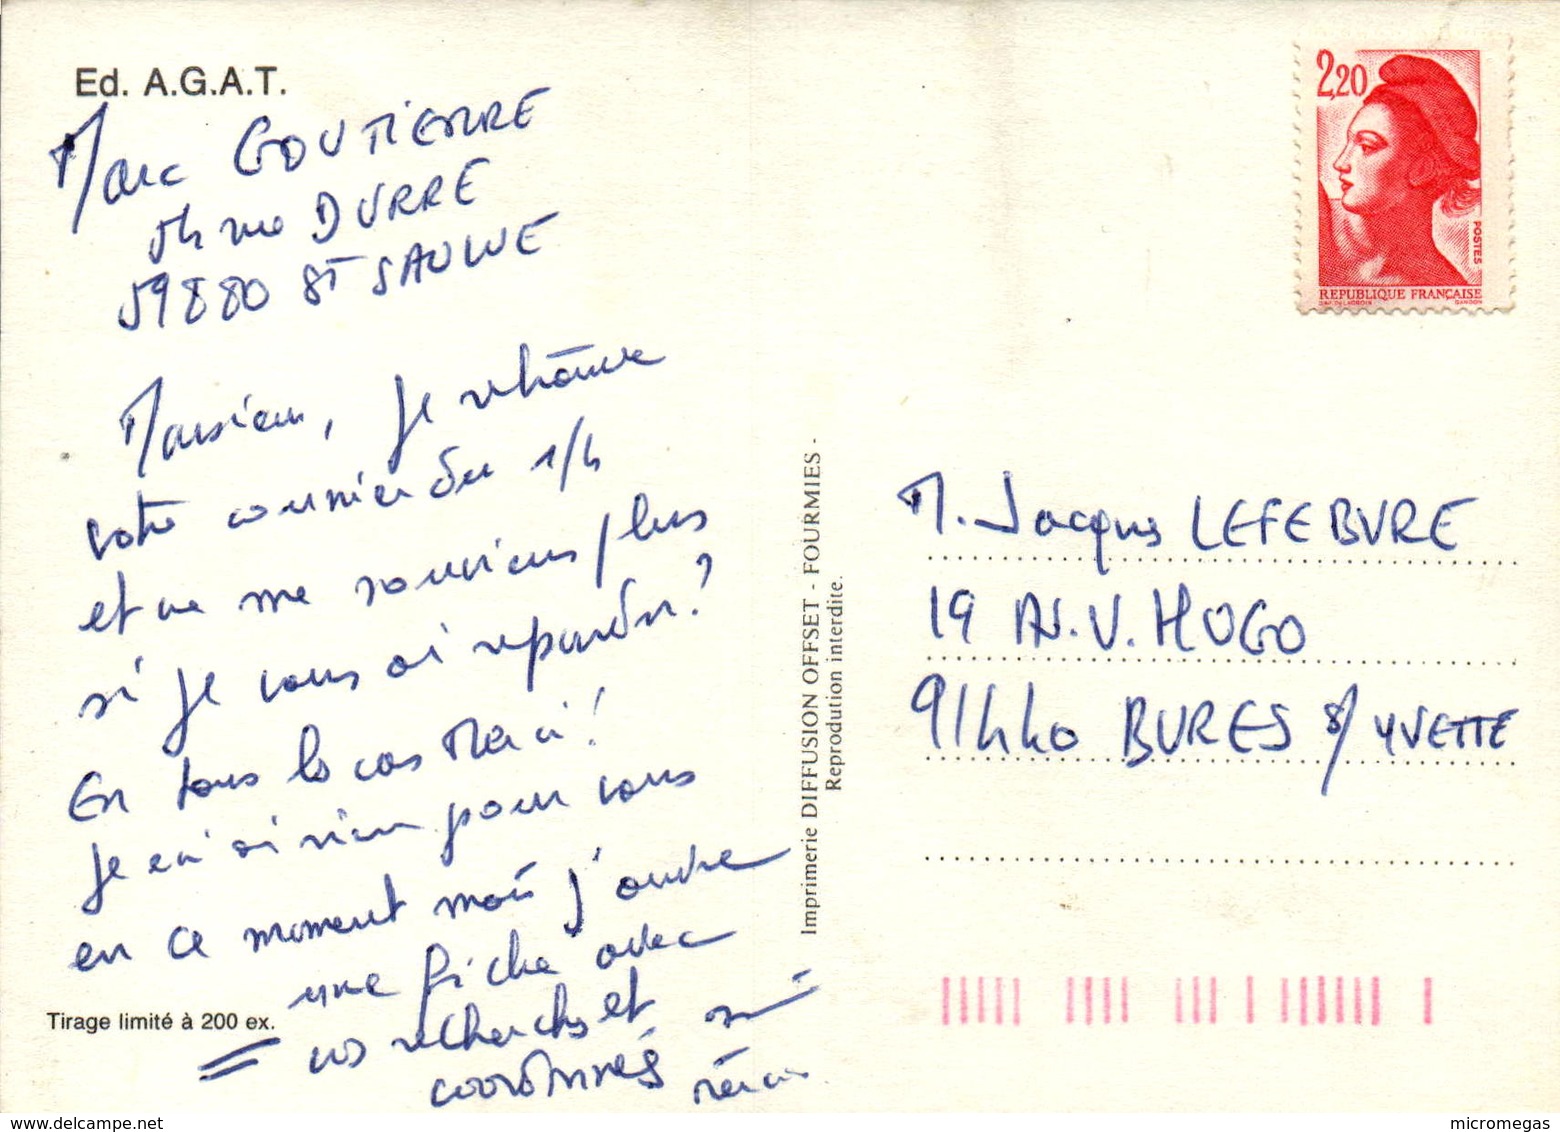 Ed. A.G.A.T.
Marc GOUTIERRE
54 rue DURRE
59880 ST SAULVE
Monsieur, je retrouve
votre courrier du 1/4
et ne me souviens plus
si je vous ai répondu?
En tous les cas Merci!
Je n'ai rien pour vous
en ce moment mais j'ai
une fiche avec
vos recherches et
coordonnées
Tirage limité à 200 ex.
Imprimerie DIFFUSION OFFSET - FOURMIES -
Reprodution interdite.
2,20
POSTES
REPUBLIQUE FRANÇAISE
GANDON
M. Jacques LEFEBVRE
19 AV. V. HUGO
91440 BURES s/ YVETTE
www.delcampe.net
micromegas